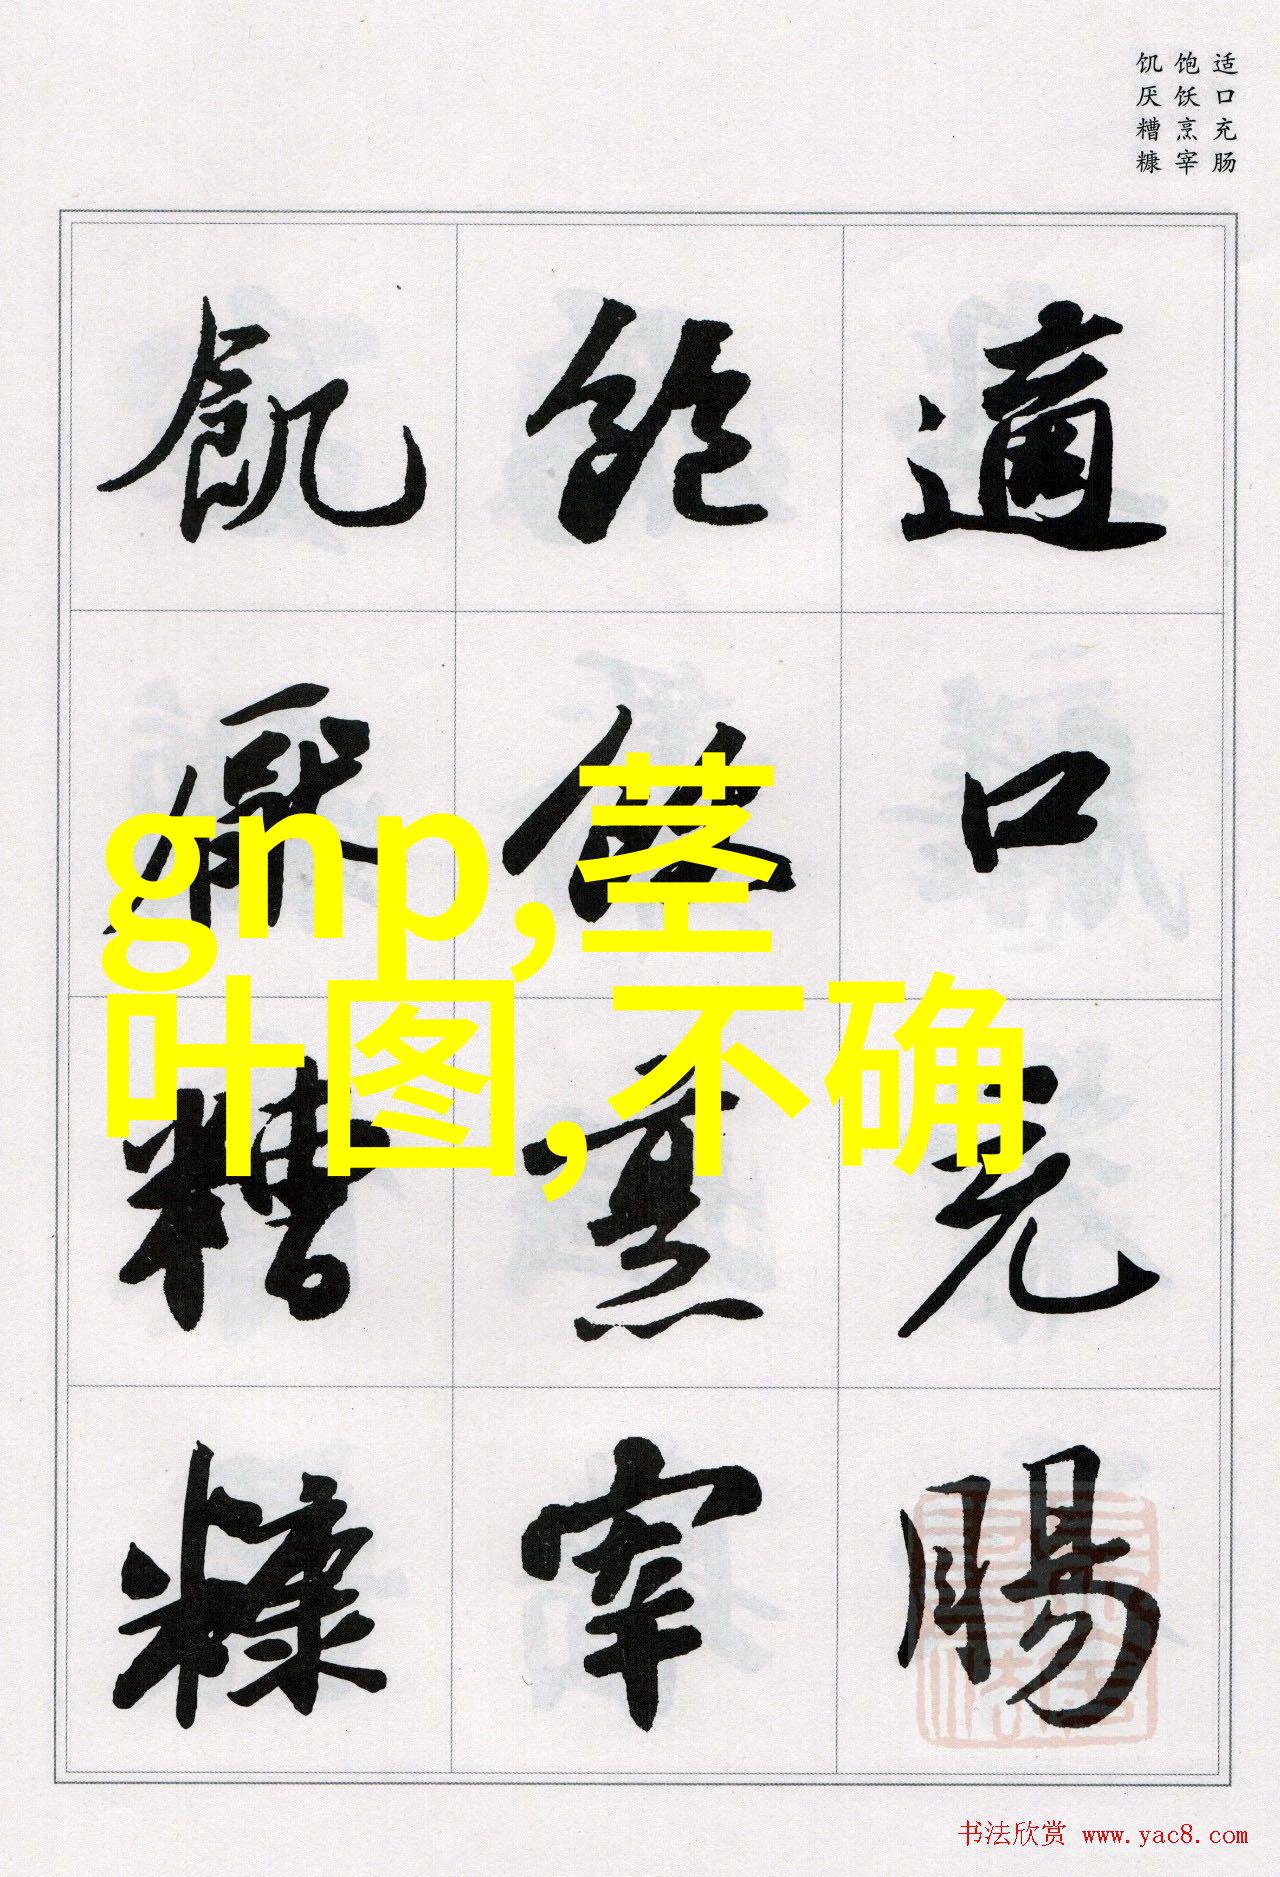 适口充肠
饱饫烹宰
饥厌糟糠
適口充腸
飽飫烹宰
飢厭糟糠
gnp,茎
叶图,不确
书法欣赏 www.yac8.com